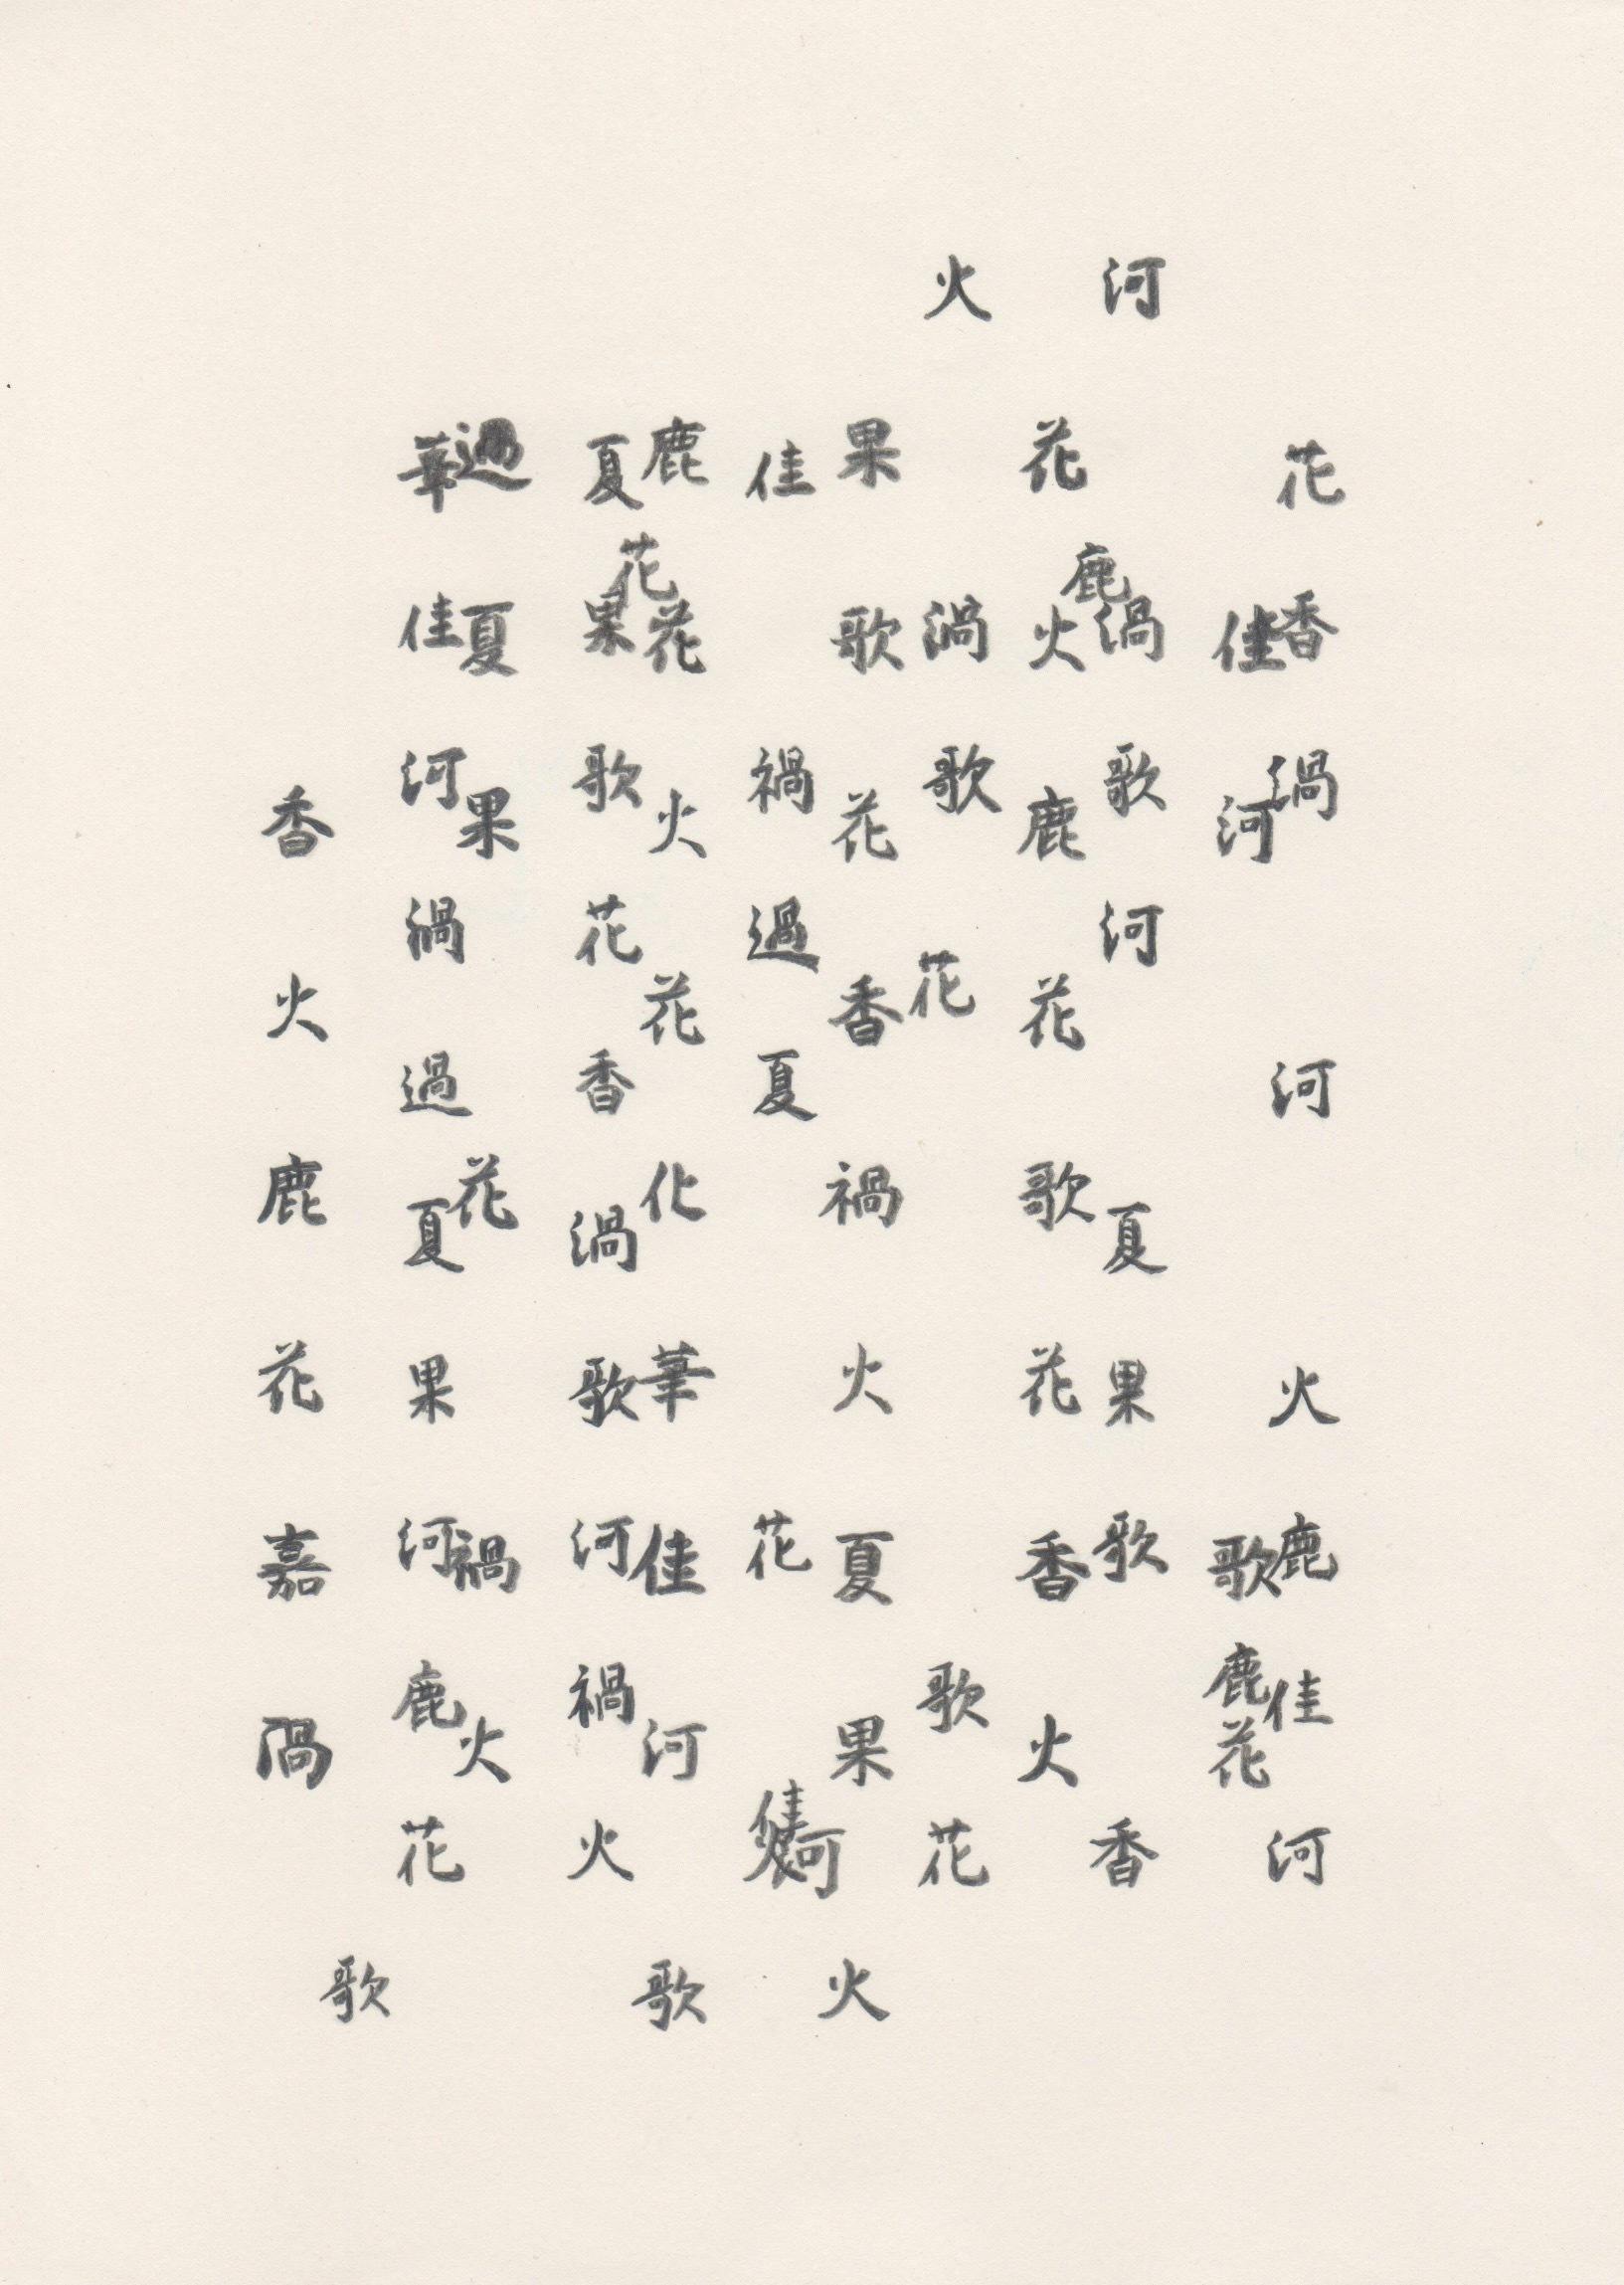 花香渦河火鹿佳河
佳河歌鹿花
河鹿渦歌河夏果歌香
花火鹿花歌花香火
火渦歌花歌花
果歌花香禍火夏果火
佳禍過夏花佳
鹿花花火花化華佳河歌
夏果歌花香渦歌河禍火
過夏果花禍火
華佳河渦過夏果河鹿花
香火鹿花嘉
歌